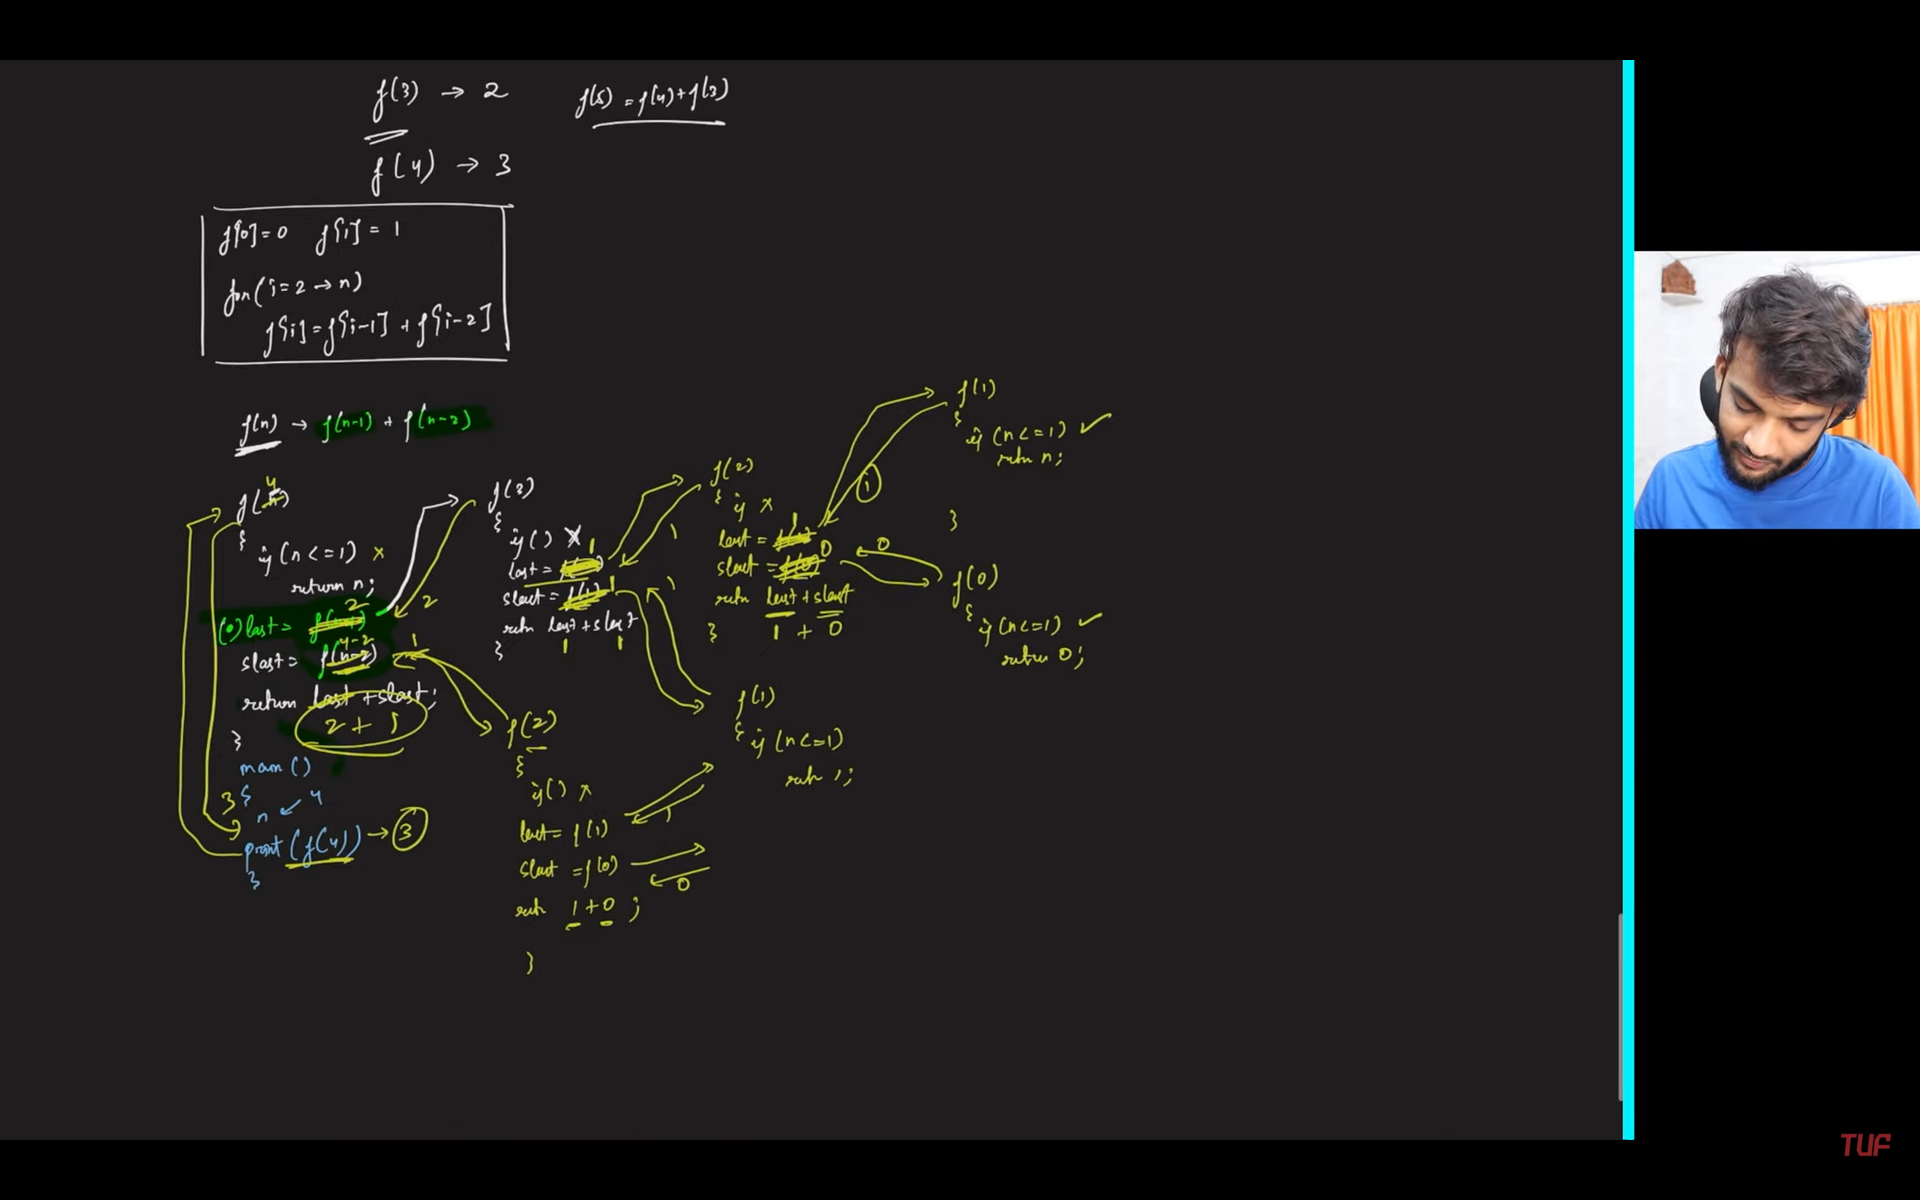 f(3) → 2
f(5) = f(4) + f(3)
f(4) → 3
f[0] = 0 f[1] = 1
for (i = 2 → n)
f[i] = f[i-1] + f[i-2]
f(n) → f(n-1) + f(n-2)
4
f(n)
{
if (n <= 1) x
return n;
2
(•) last = f(n-1)
4-2
slast = f(n-2)
return last + slast;
2 + 1
}
main ()
{
n ← 4
print (f(4)) → 3
}
3
2
1
f(3)
{
if () x
1
last = f(2)
slast = f(1) 1
retn last + slast
1 1
}
1
1
f(2)
{ if x
1
last =
slast = f(0) 0
retn last + slast
1 + 0
}
1
0
f(1)
{
if (n <= 1) ✓
retn n;
}
f(0)
{
if (n <= 1) ✓
return 0;
f(1)
{ if (n <= 1)
retn 1;
f(2)
{
if () x
last = f(1)
1
slast = f(0)
0
retn 1 + 0 ;
}
TUF